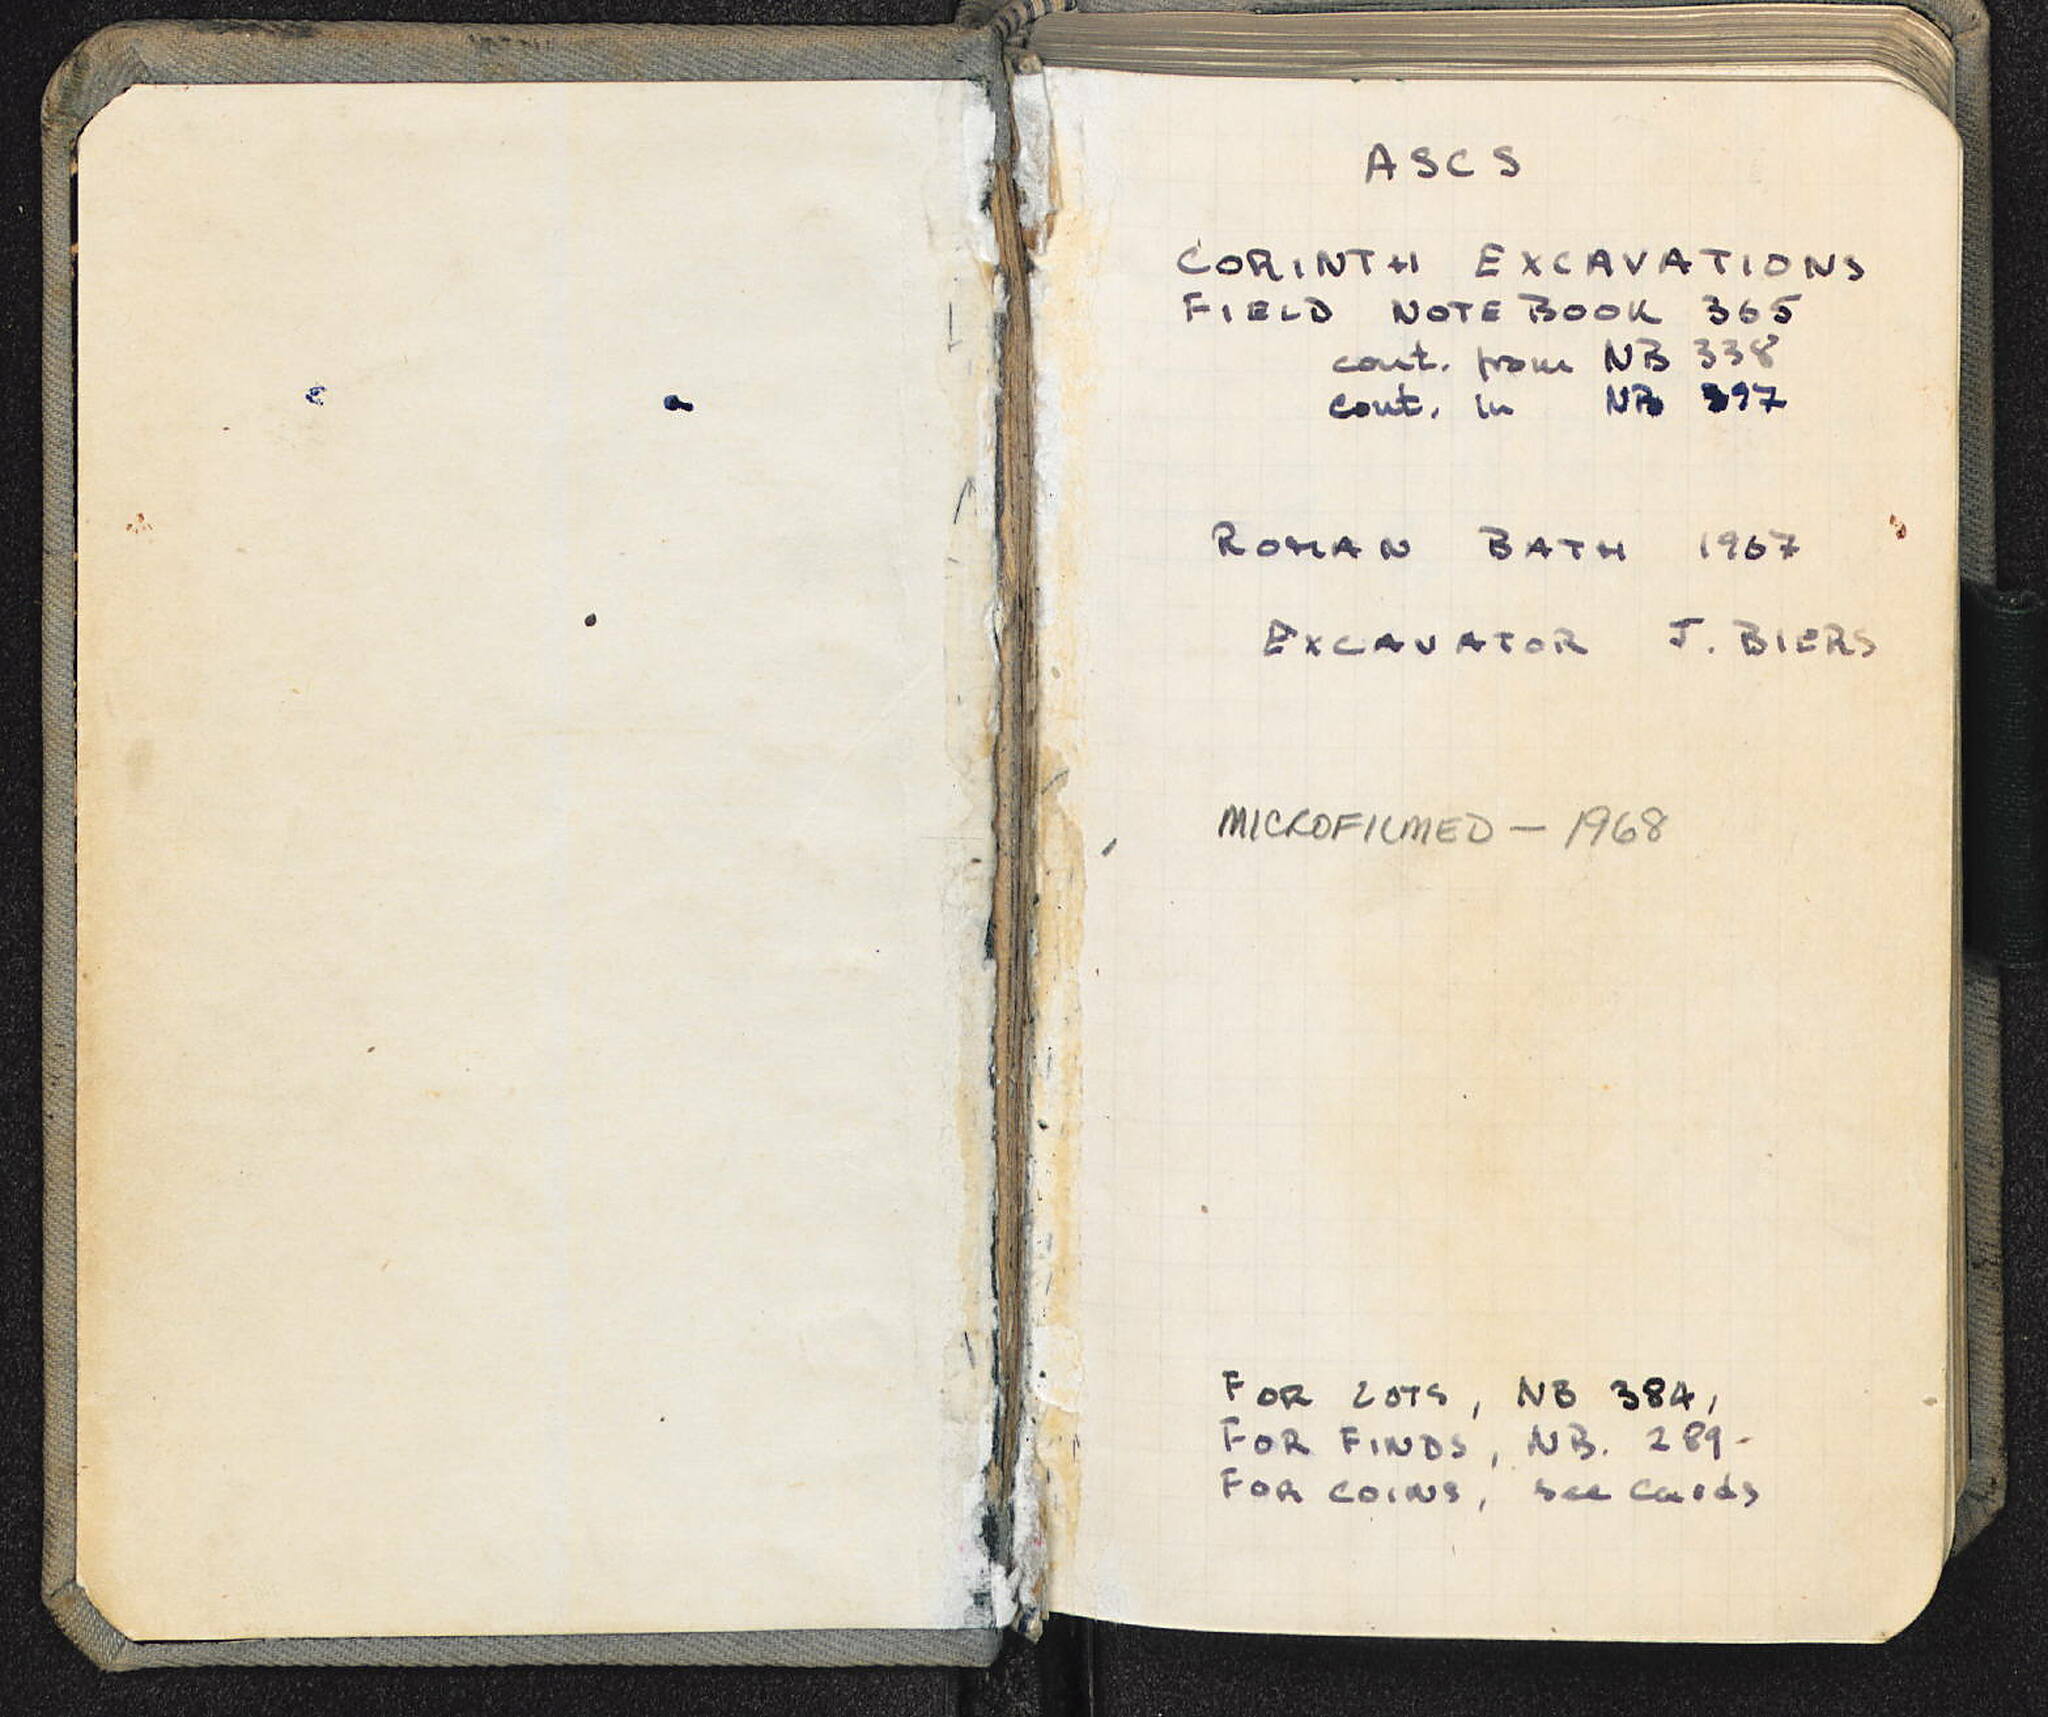 ASCS
CORINTH EXCAVATIONS
FIELD NOTEBOOK 365
cont. from NB 338
cont. in NB 397
ROMAN BATH 1967
EXCAVATOR J. BIERS
MICROFILMED — 1968
FOR LOTS, NB 384,
FOR FINDS, NB. 289-
FOR COINS, see cards